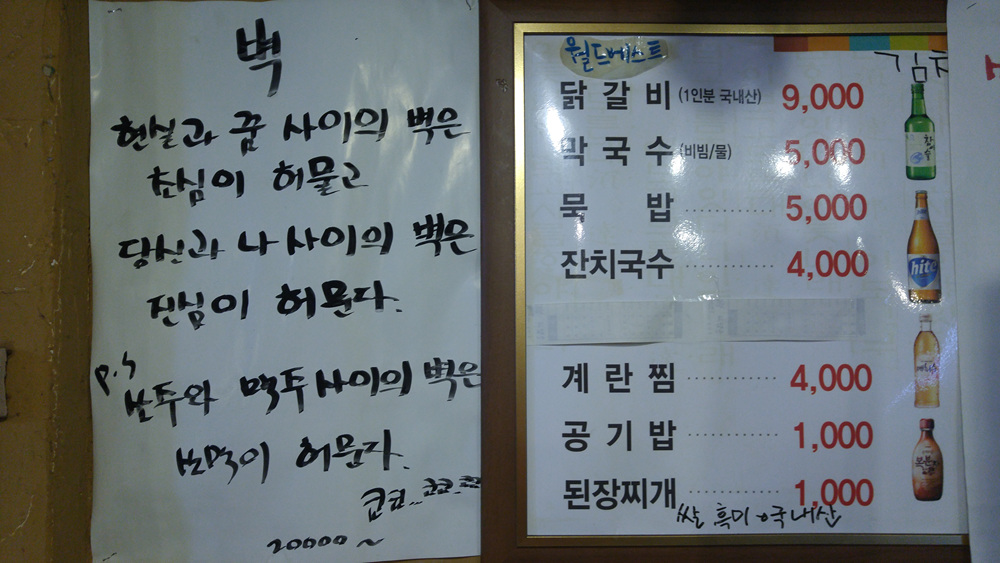 벽
현실과 꿈 사이의 벽은
초심이 허물고
당신과 나 사이의 벽은
진심이 허문다.
p.s
소주와 맥주 사이의 벽은
쏘맥이 허문다.
쿄쿄...쿄쿄.쿄
20000~
월드베스트
닭갈비 (1인분 국내산) 9,000
막국수 (비빔/물) 5,000
묵 밥 5,000
잔치국수 4,000
계란찜 4,000
공기밥 1,000
된장찌개 1,000
쌀 흑미 국내산
hite